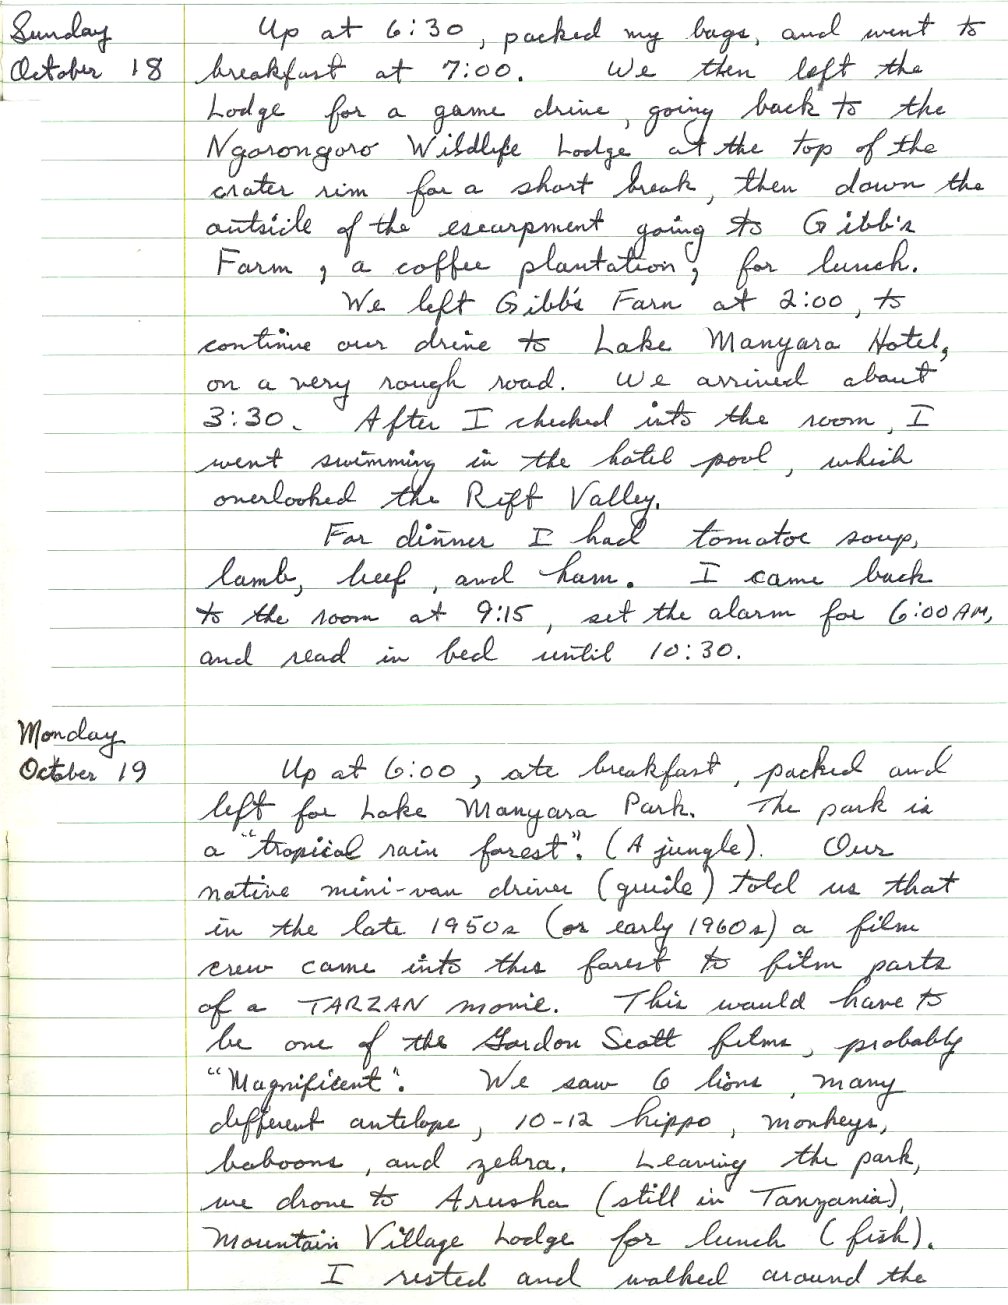 Sunday
October 18
Up at 6:30, packed my bags, and went to
breakfast at 7:00. We then left the
Lodge for a game drive, going back to the
Ngorongoro Wildlife Lodge at the top of the
crater rim for a short break, then down the
outside of the escarpment going to Gibb's
Farm, a coffee plantation, for lunch.
We left Gibb's Farm at 2:00, to
continue our drive to Lake Manyara Hotel,
on a very rough road. We arrived about
3:30. After I checked into the room, I
went swimming in the hotel pool, which
overlooked the Rift Valley.
For dinner I had tomatoe soup,
lamb, beef, and ham. I came back
to the room at 9:15, set the alarm for 6:00 AM,
and read in bed until 10:30.
Monday
October 19
Up at 6:00, ate breakfast, packed and
left for Lake Manyara Park. The park is
a "tropical rain forest". (A jungle). Our
native mini-van driver (guide) told us that
in the late 1950s (or early 1960s) a film
crew came into this forest to film parts
of a TARZAN movie. This would have to
be one of the Gordon Scott films, probably
"Magnificent". We saw 6 lions, many
different antelope, 10-12 hippo, monkeys,
baboons, and zebra. Leaving the park,
we drove to Arusha (still in Tanzania),
Mountain Village Lodge for lunch (fish).
I rested and walked around the